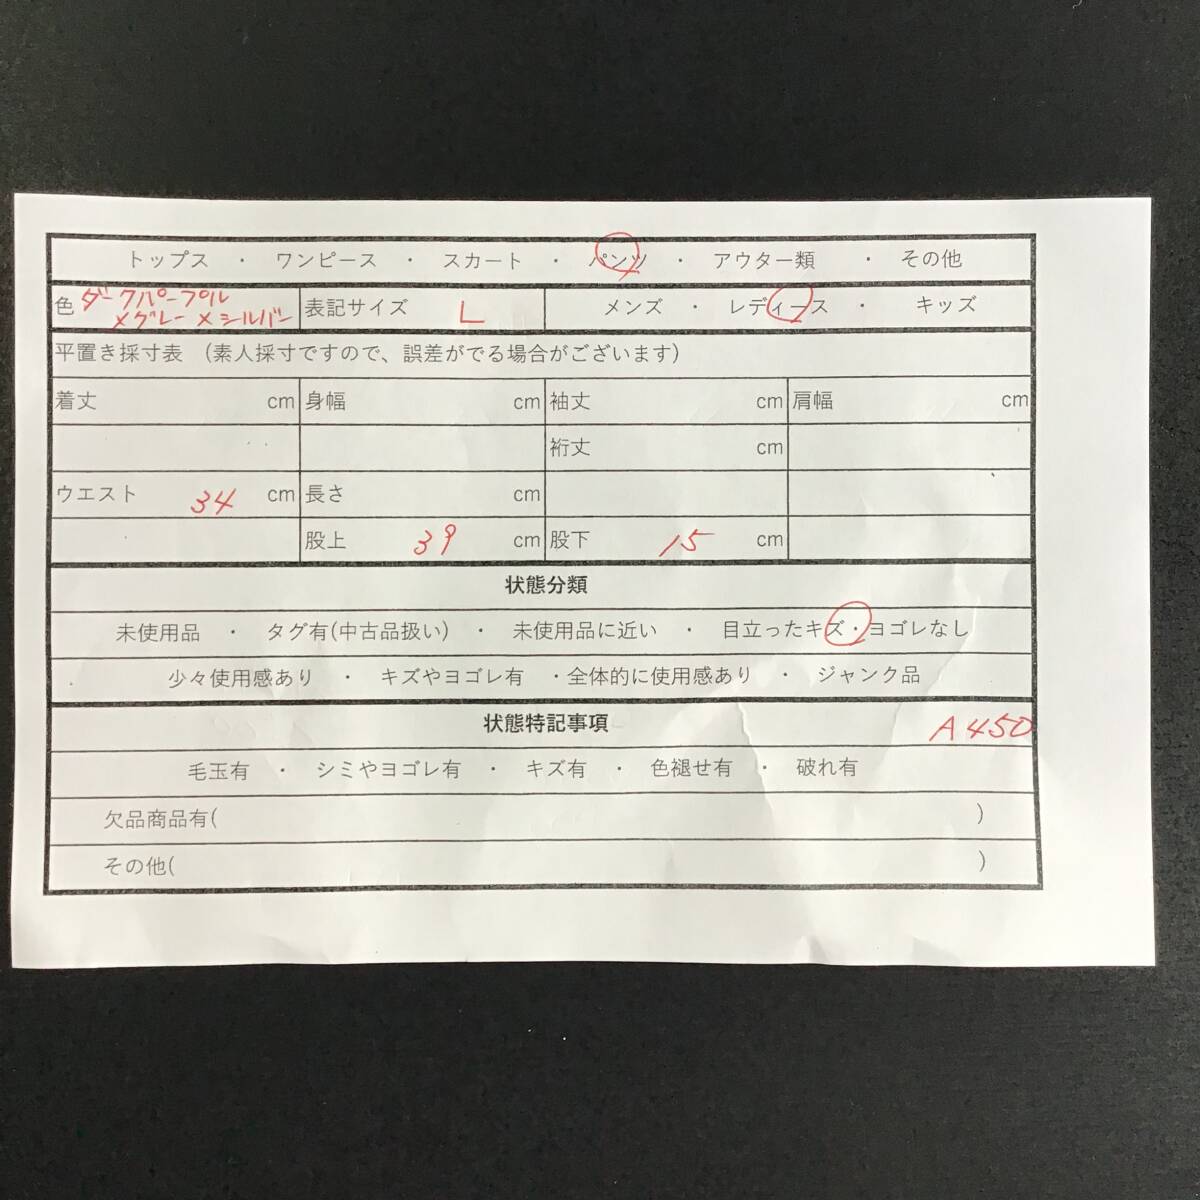 トップス ・ ワンピース ・ スカート ・ パンツ ・ アウター類 ・ その他
色 ダークパープル 表記サイズ L メンズ ・ レディース ・ キッズ
×グレー×シルバー
平置き採寸表 (素人採寸ですので、誤差がでる場合がございます)
着丈 cm 身幅 cm 袖丈 cm 肩幅 cm
裄丈 cm
ウエスト 34 cm 長さ cm
股上 39 cm 股下 15 cm
状態分類
未使用品 ・ タグ有(中古品扱い) ・ 未使用品に近い ・ 目立ったキズ・ヨゴレなし
少々使用感あり ・ キズやヨゴレ有 ・全体的に使用感あり ・ ジャンク品
状態特記事項 A450
毛玉有 ・ シミやヨゴレ有 ・ キズ有 ・ 色褪せ有 ・ 破れ有
欠品商品有( )
その他( )